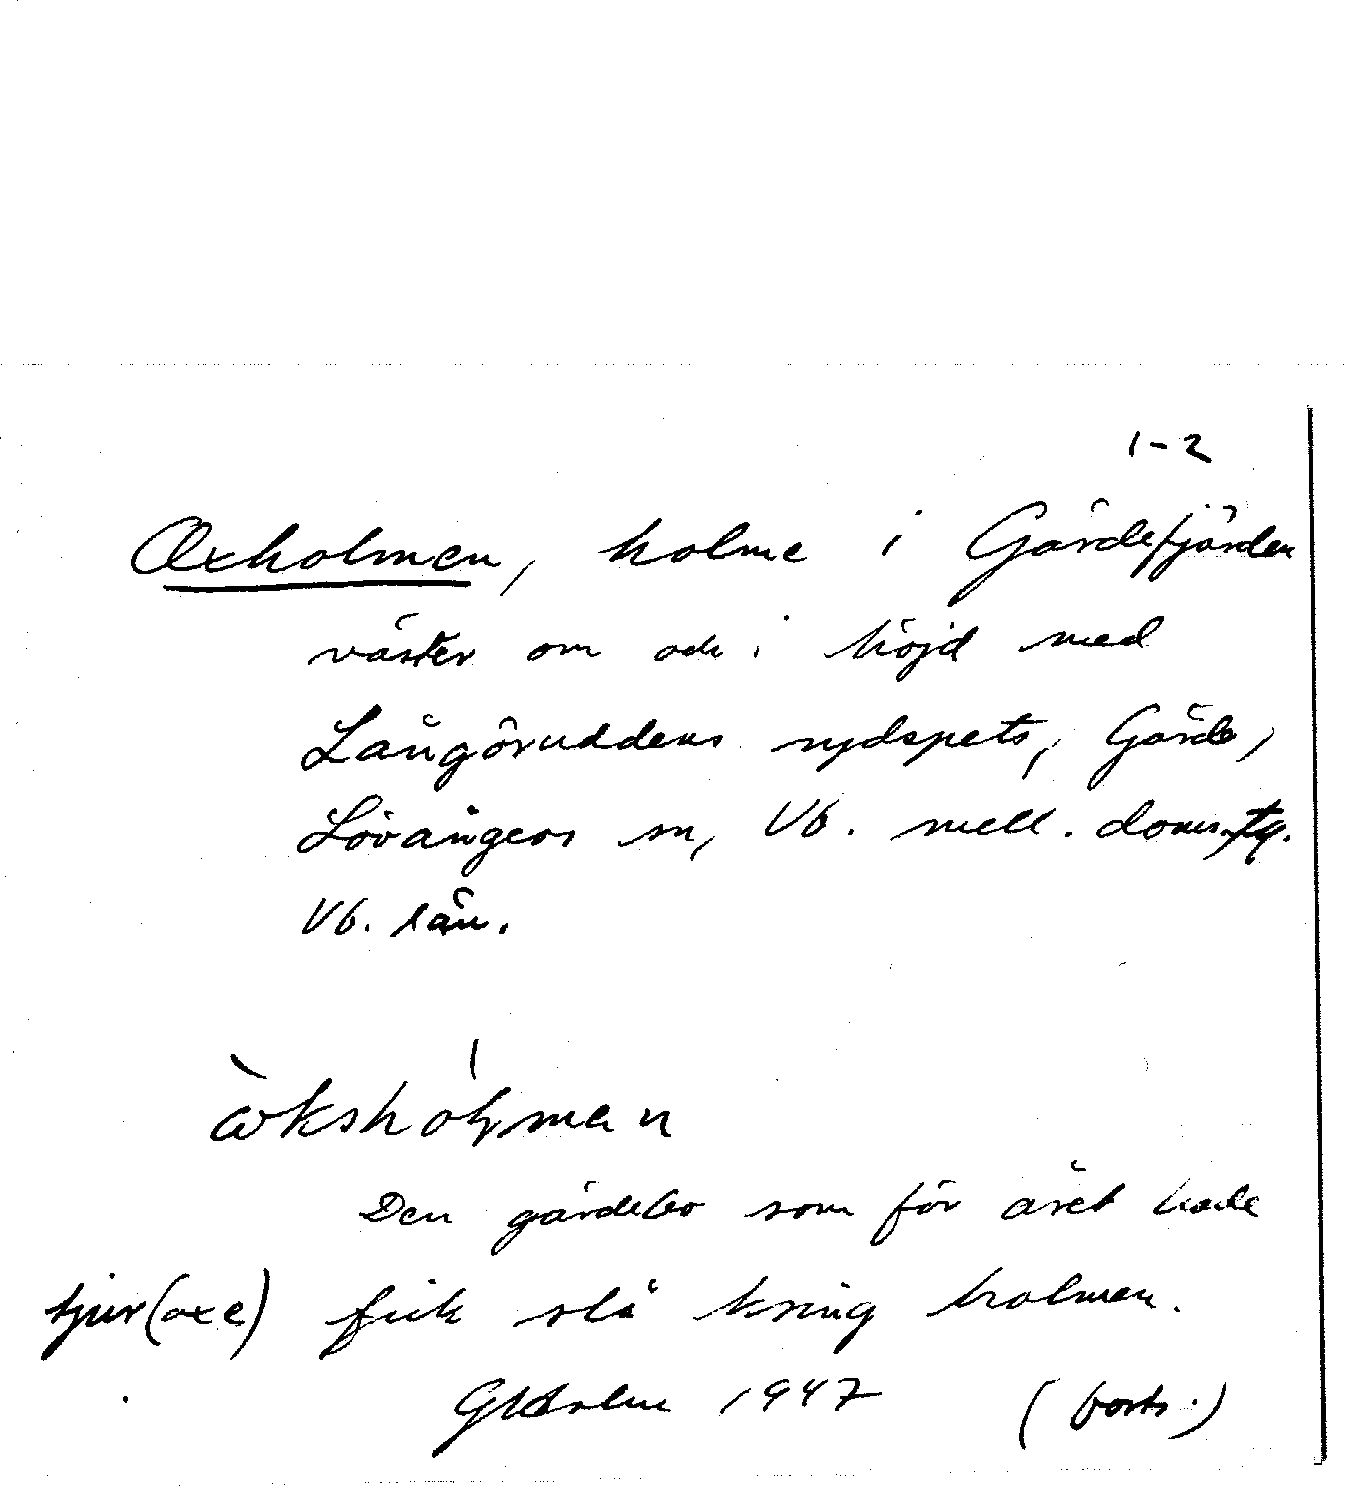 1-2
Oxholmen, holme i Gärdefjärden
väster om och i höjd med
Långöruddens sydspets, Gärde,
Lövångers sn, Vb. mell. doms. tg.
Vb. län.
Den gärdebo som för året hade
tjur (oxe) fick slå kring holmen.
1947 (forts.)